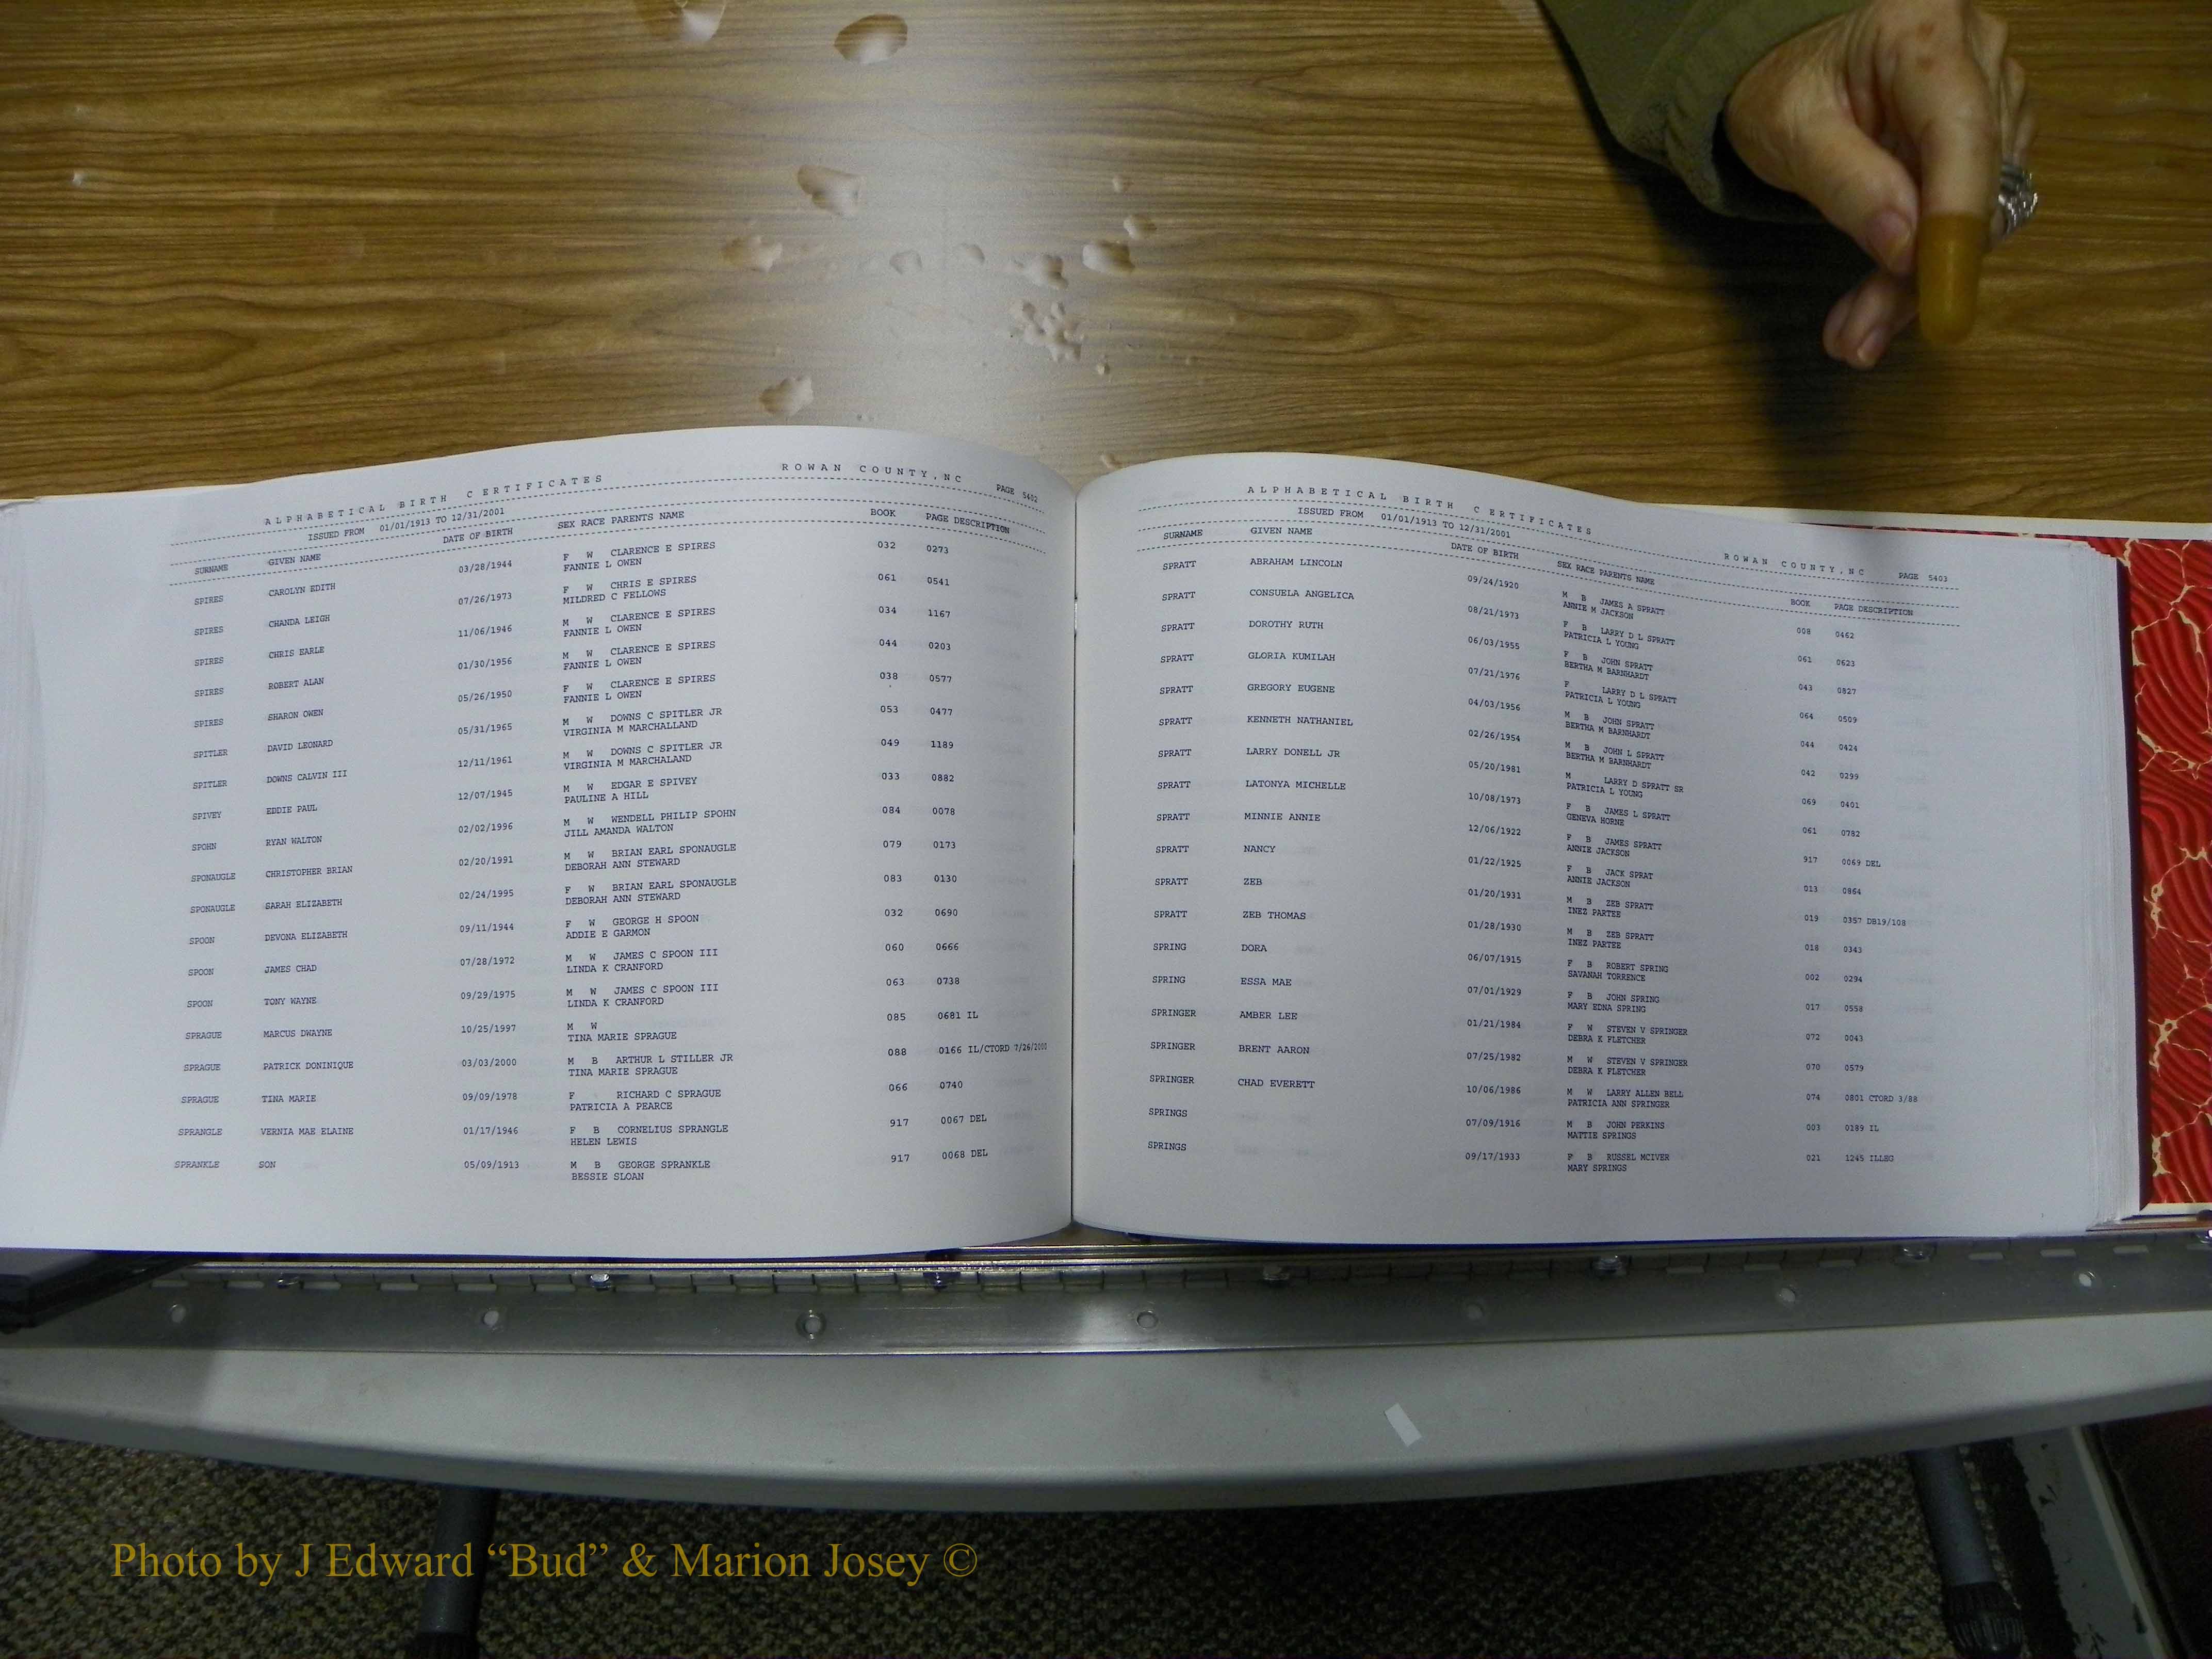 ALPHABETICAL BIRTH CERTIFICATES ROWAN COUNTY,NC PAGE 5402
ISSUED FROM 01/01/1913 TO 12/31/2001
SURNAME GIVEN NAME DATE OF BIRTH SEX RACE PARENTS NAME BOOK PAGE DESCRIPTION
SPIRES CAROLYN EDITH 03/28/1944 F W CLARENCE E SPIRES 032 0273
FANNIE L OWEN
SPIRES CHANDA LEIGH 07/26/1973 F W CHRIS E SPIRES 061 0541
MILDRED C FELLOWS
SPIRES CHRIS EARLE 11/06/1946 M W CLARENCE E SPIRES 034 1167
FANNIE L OWEN
SPIRES ROBERT ALAN 01/30/1956 M W CLARENCE E SPIRES 044 0203
FANNIE L OWEN
SPIRES SHARON OWEN 05/26/1950 F W CLARENCE E SPIRES 038 0577
FANNIE L OWEN
SPITLER DAVID LEONARD 05/31/1965 M W DOWNS C SPITLER JR 053 0477
VIRGINIA M MARCHALLAND
SPITLER DOWNS CALVIN III 12/11/1961 M W DOWNS C SPITLER JR 049 1189
VIRGINIA M MARCHALAND
SPIVEY EDDIE PAUL 12/07/1945 M W EDGAR E SPIVEY 033 0882
PAULINE A HILL
SPOHN RYAN WALTON 02/02/1996 M W WENDELL PHILIP SPOHN 084 0078
JILL AMANDA WALTON
SPONAUGLE CHRISTOPHER BRIAN 02/20/1991 M W BRIAN EARL SPONAUGLE 079 0173
DEBORAH ANN STEWARD
SPONAUGLE SARAH ELIZABETH 02/24/1995 F W BRIAN EARL SPONAUGLE 083 0130
DEBORAH ANN STEWARD
SPOON DEVONA ELIZABETH 09/11/1944 F W GEORGE H SPOON 032 0690
ADDIE E GARMON
SPOON JAMES CHAD 07/28/1972 M W JAMES C SPOON III 060 0666
LINDA K CRANFORD
SPOON TONY WAYNE 09/29/1975 M W JAMES C SPOON III 063 0738
LINDA K CRANFORD
SPRAGUE MARCUS DWAYNE 10/25/1997 M W 085 0681 IL
TINA MARIE SPRAGUE
SPRAGUE PATRICK DONINIQUE 03/03/2000 M B ARTHUR L STILLER JR 088 0166 IL/CTORD 7/26/2000
TINA MARIE SPRAGUE
SPRAGUE TINA MARIE 09/09/1978 F RICHARD C SPRAGUE 066 0740
PATRICIA A PEARCE
SPRANGLE VERNIA MAE ELAINE 01/17/1946 F B CORNELIUS SPRANGLE 917 0067 DEL
HELEN LEWIS
SPRANKLE SON 05/09/1913 M B GEORGE SPRANKLE 917 0068 DEL
BESSIE SLOAN
ALPHABETICAL BIRTH CERTIFICATES ROWAN COUNTY,NC PAGE 5403
ISSUED FROM 01/01/1913 TO 12/31/2001
SURNAME GIVEN NAME DATE OF BIRTH SEX RACE PARENTS NAME BOOK PAGE DESCRIPTION
SPRATT ABRAHAM LINCOLN 09/24/1920 M B JAMES A SPRATT 008 0462
ANNIE M JACKSON
SPRATT CONSUELA ANGELICA 08/21/1973 F B LARRY D L SPRATT 061 0623
PATRICIA L YOUNG
SPRATT DOROTHY RUTH 06/03/1955 F B JOHN SPRATT 043 0827
BERTHA M BARNHARDT
SPRATT GLORIA KUMILAH 07/21/1976 F LARRY D L SPRATT 064 0509
PATRICIA L YOUNG
SPRATT GREGORY EUGENE 04/03/1956 M B JOHN SPRATT 044 0424
BERTHA M BARNHARDT
SPRATT KENNETH NATHANIEL 02/26/1954 M B JOHN L SPRATT 042 0299
BERTHA M BARNHARDT
SPRATT LARRY DONELL JR 05/20/1981 M LARRY D SPRATT SR 069 0401
PATRICIA L YOUNG
SPRATT LATONYA MICHELLE 10/08/1973 F B JAMES L SPRATT 061 0782
GENEVA HORNE
SPRATT MINNIE ANNIE 12/06/1922 F B JAMES SPRATT 917 0069 DEL
ANNIE JACKSON
SPRATT NANCY 01/22/1925 F B JACK SPRAT 013 0864
ANNIE JACKSON
SPRATT ZEB 01/20/1931 M B ZEB SPRATT 019 0357 DB19/108
INEZ PARTEE
SPRATT ZEB THOMAS 01/28/1930 M B ZEB SPRATT 018 0343
INEZ PARTEE
SPRING DORA 06/07/1915 F B ROBERT SPRING 002 0294
SAVANAH TORRENCE
SPRING ESSA MAE 07/01/1929 F B JOHN SPRING 017 0558
MARY EDNA SPRING
SPRINGER AMBER LEE 01/21/1984 F W STEVEN V SPRINGER 072 0043
DEBRA K FLETCHER
SPRINGER BRENT AARON 07/25/1982 M W STEVEN V SPRINGER 070 0579
DEBRA K FLETCHER
SPRINGER CHAD EVERETT 10/06/1986 M W LARRY ALLEN BELL 074 0801 CTORD 3/88
PATRICIA ANN SPRINGER
SPRINGS 07/09/1916 M B JOHN PERKINS 003 0189 IL
MATTIE SPRINGS
SPRINGS 09/17/1933 F B RUSSEL MCIVER 021 1245 ILLEG
MARY SPRINGS
Photo by J Edward “Bud” & Marion Josey ©